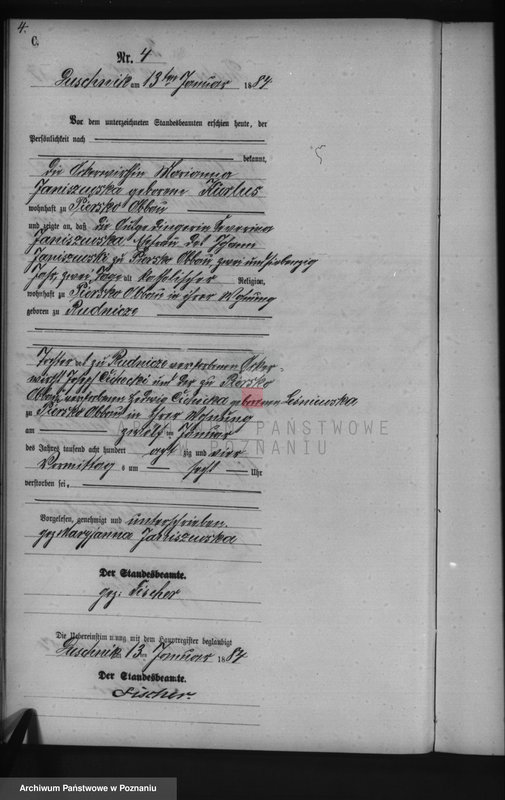 4.
C.
Nr. 4
Duschnik am 13ten Januar 1884
Vor dem unterzeichneten Standesbeamten erschien heute, der
Persönlichkeit nach
bekannt,
die Ackerwirthin Marianna
Janiszewska geborene Kurbus
wohnhaft zu Piersko Abbau
und zeigte an, daß die Ausgedingerin Severina
Janiszewska Ehefrau des Johann
Janiszewski zu Piersko Abbau, zwei und siebenzig
Jahr, zwei Tage alt, katholischer Religion,
wohnhaft zu Piersko Abbau in ihrer Wohnung
geboren zu Rudnicze
Tochter des zu Rudnicze verstorbenen Acker-
wirths Josef Cichocki und der zu Piersko
Abbau verstorbenen Hedwig Cichocka geborenen Leśniewska
zu Piersko Abbau in ihrer Wohnung
am zwölften Januar
des Jahres tausend acht hundert achtzig und vier
Vormittag s um sechs Uhr
verstorben sei.
Vorgelesen, genehmigt und unterschrieben.
gez Maryjanna Janiszewska
Der Standesbeamte.
gez: Fischer
Die Uebereinstimmung mit dem Hauptregister beglaubigt
Duschnik, 13ten Januar 1884
Der Standesbeamte.
Fischer.
ARCHIWUM PAŃSTWOWE
W POZNANIU
Archiwum Państwowe w Poznaniu